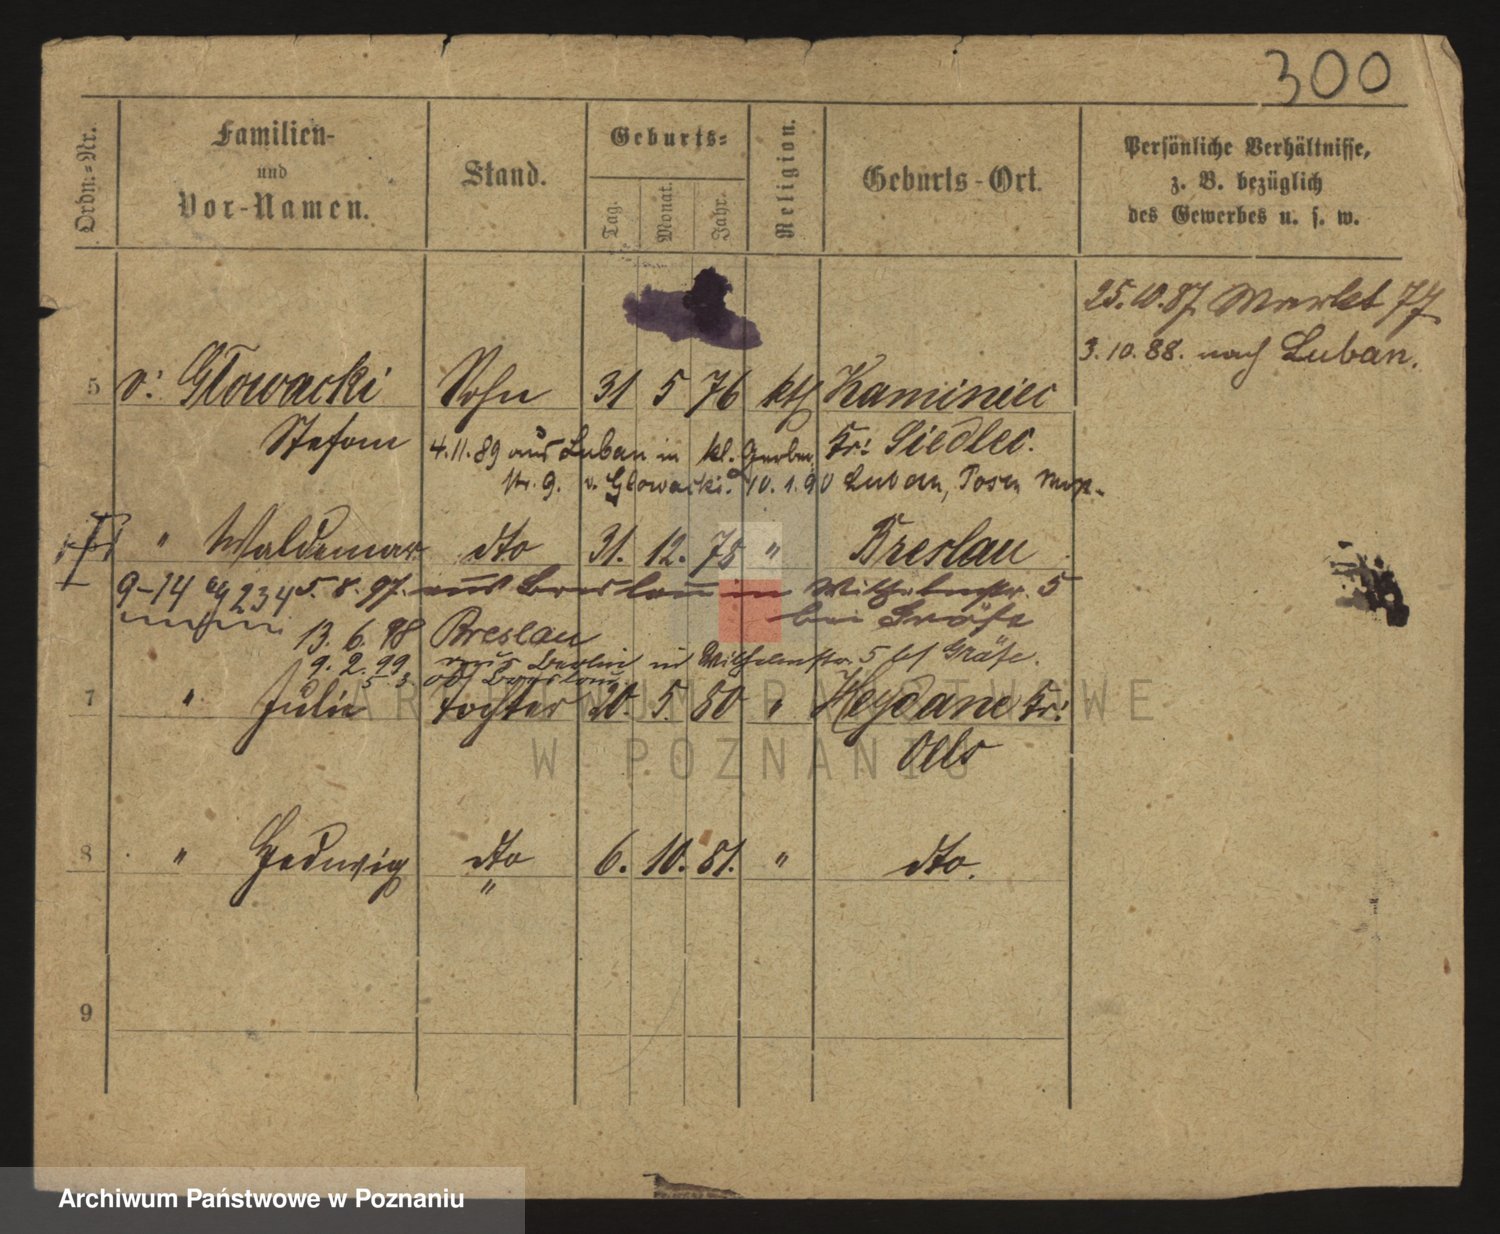 300
Ordn.-Nr.
Familien-
und
Vor-Namen.
Stand.
Geburts-
Tag.
Monat.
Jahr.
Religion.
Geburts-Ort.
Persönliche Verhältnisse,
z. B. bezüglich
des Gewerbes u. s. w.
25.10.87 Markt 77
3.10.88. nach Luban.
5 v: Głowacki Sohn 31 5 76 kth Kaminiec
Stefan Kr: Siedlec.
4.11.89 aus Luban in kl. Gerber
str. 9. v. Głowacki. 10.1.90 Luban, Posen
" Waldemar dto 31. 12. 78 " Breslau
9-14 234 5.8.97. aus Breslau in Wilhelmstr. 5
bei Gräfe
13. 6. 98 Breslau
9. 2. 99 aus Berlin in Wilhelmstr. 5 bei Gräfe.
5. 3. Breslau
7 " Julie Tochter 20. 5. 80 " Heydane Kr:
Oels
8 " Hedwig dto 6. 10. 81. " dto.
"
9
ARCHIWUM PAŃSTWOWE
W POZNANIU
Archiwum Państwowe w Poznaniu